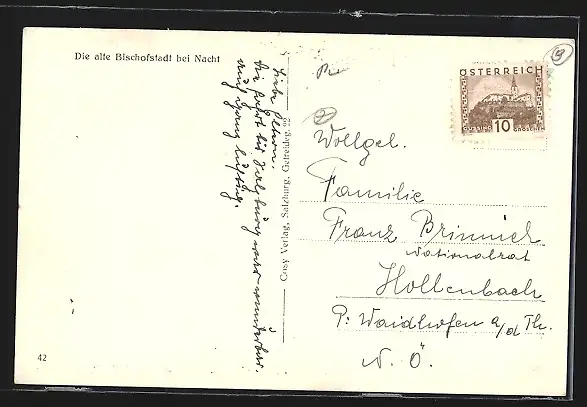 Die alte Bischofstadt bei Nacht
Liebe Eltern!
Die Fahrt bis Salzburg war wunderbar.
ganz lustig.
Cosy Verlag, Salzburg, Getreideg. 22
ÖSTERREICH
GÜSSING 10 GROSCHEN
Wollgel.
Familie
Franz Brinnich
Nationalrat
Hollenbach
P: Waidhofen a/d Th.
N. Ö.
42